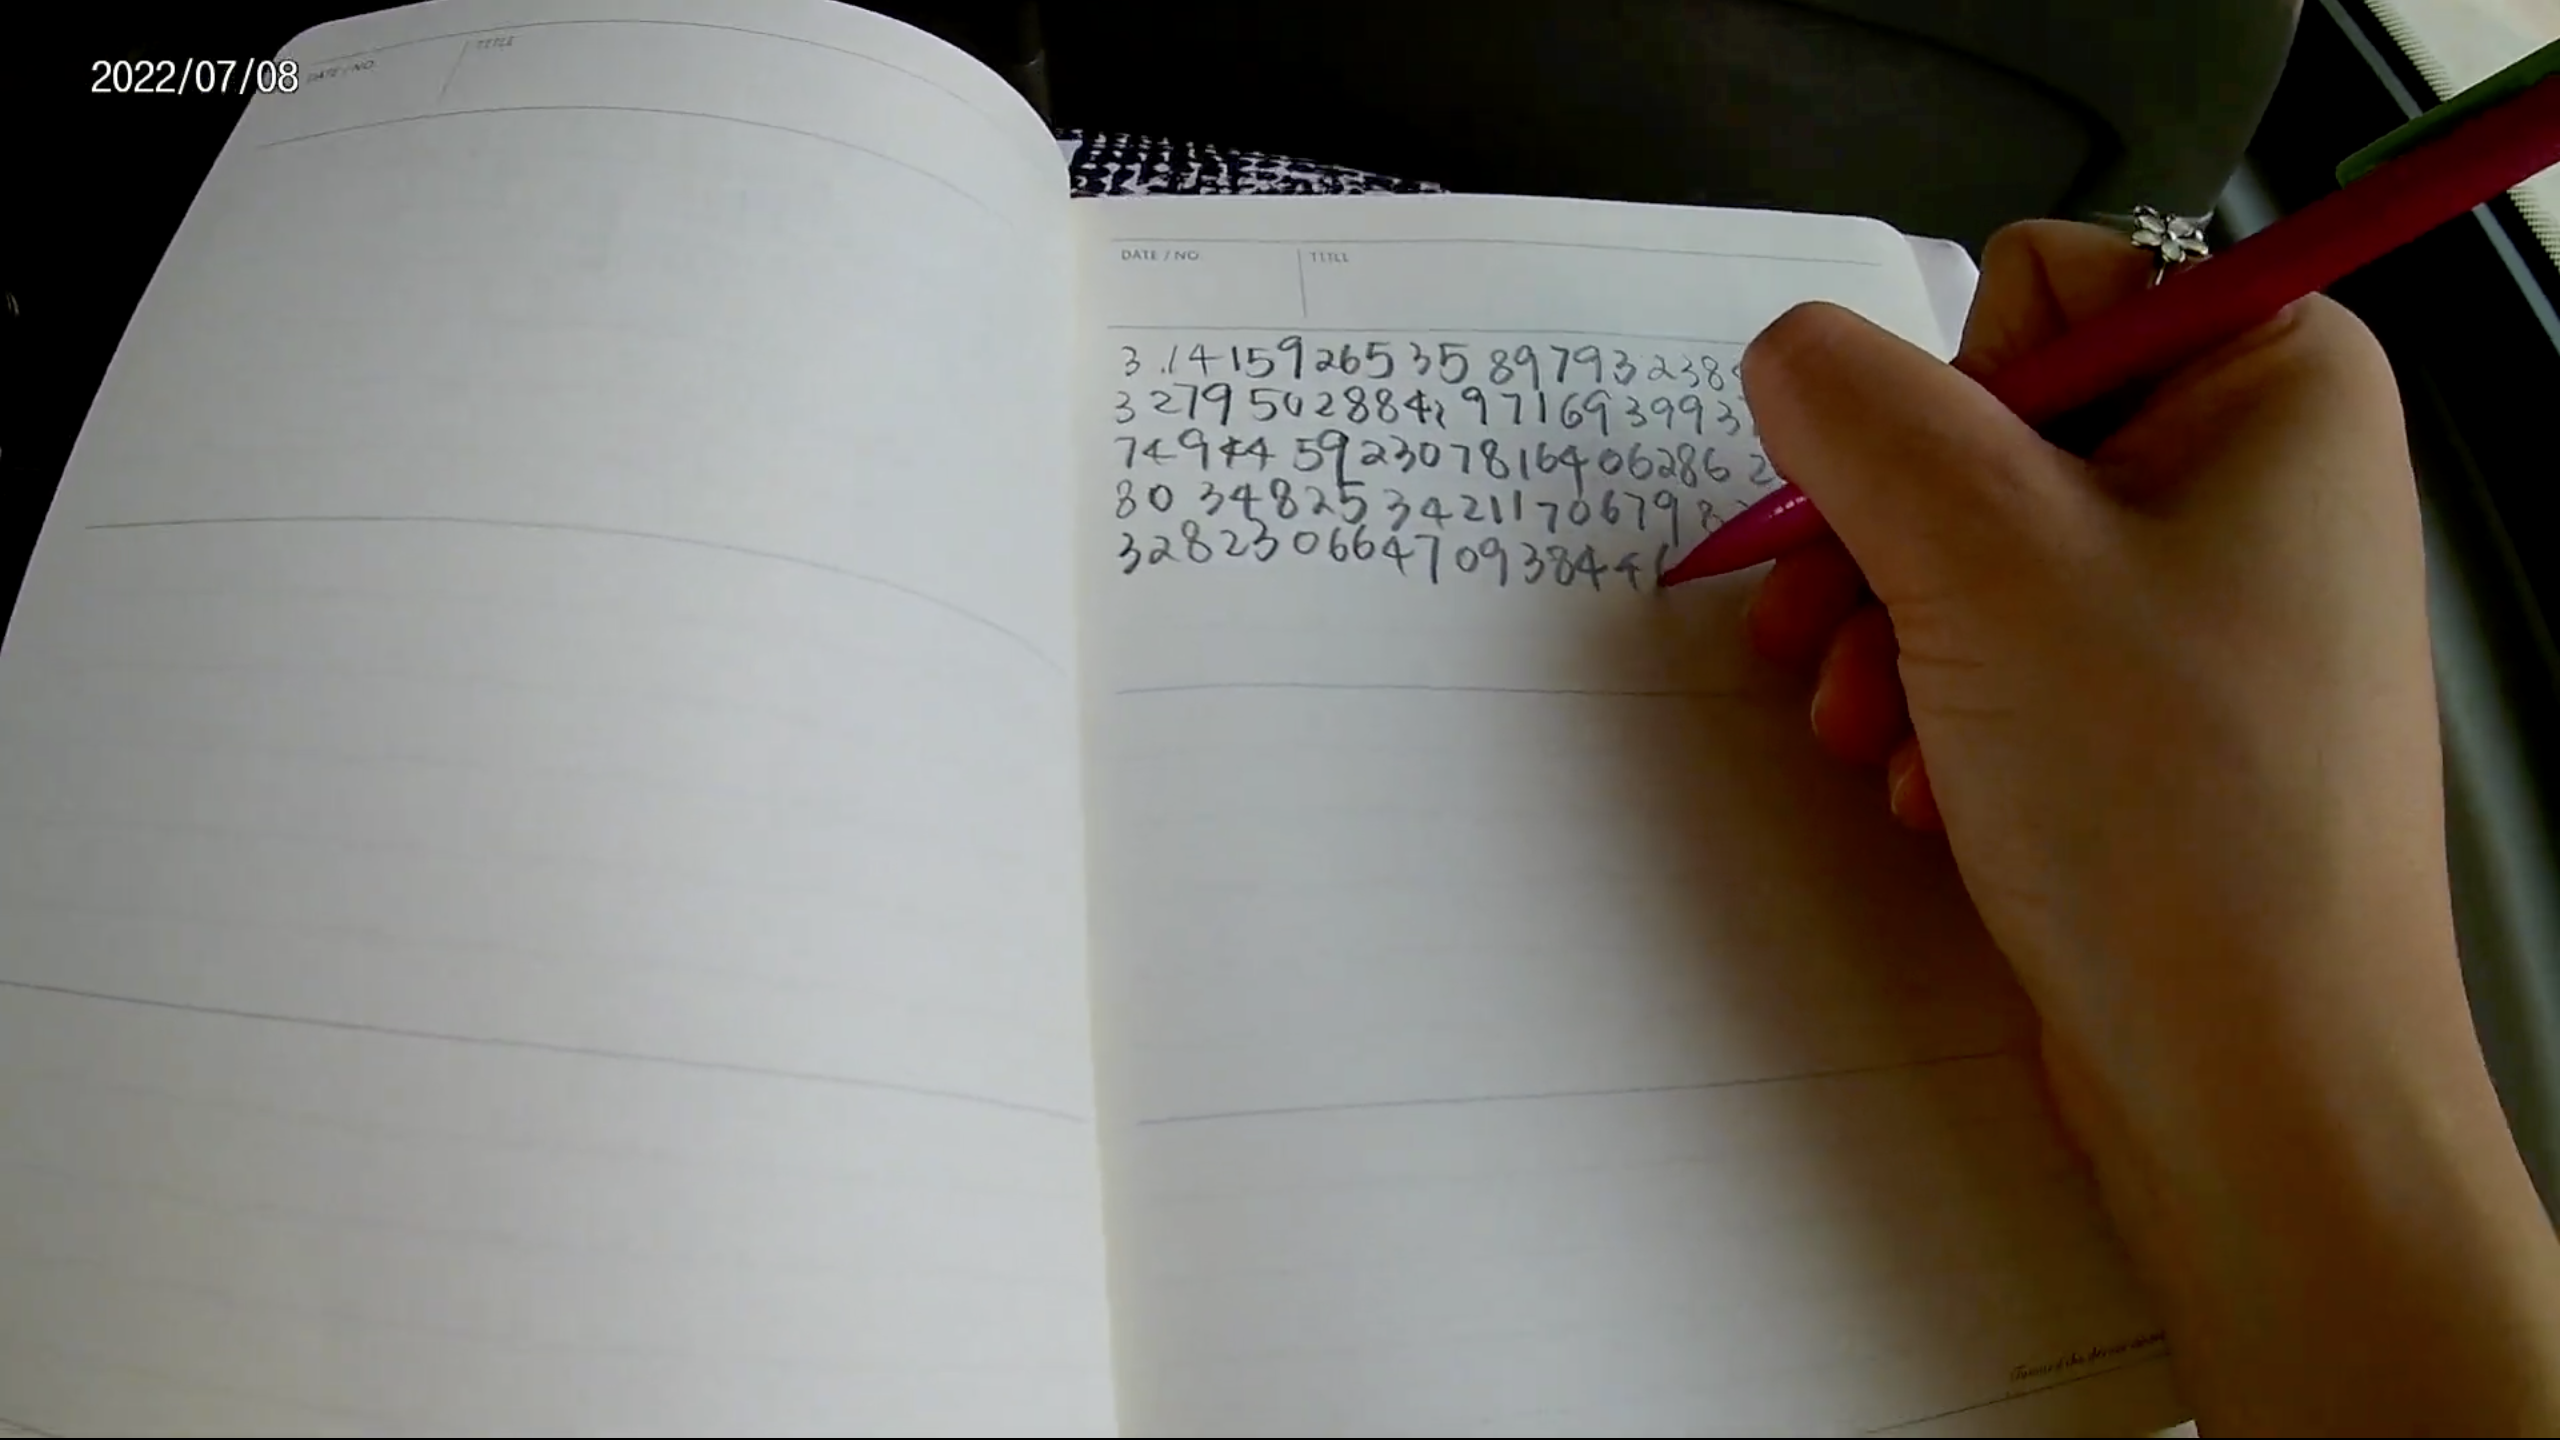 2022/07/08
DATE / NO. TITLE
DATE / NO. TITLE
3.1415926535897932384
327950288419716939937
74944592307816406286 2
80 34825342117067982
32823066470938446